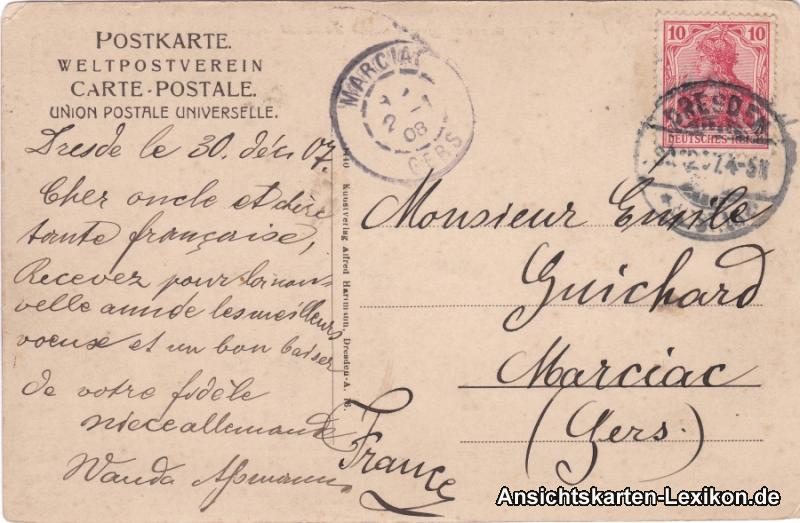 POSTKARTE.
WELTPOSTVEREIN
CARTE-POSTALE.
UNION POSTALE UNIVERSELLE.
Dresde le 30. déc. 07.
Cher oncle et chère
tante française,
Recevez pour la nou-
velle année les meilleurs
voeux et un bon baiser
de votre fidèle
niece allemande
Wanda Aßmann
Kunstverlag Alfred Hartmann, Dresden-A. 16.
MARCIAC
2
08
GERS
10 10
DEUTSCHES REICH
DRESDEN
Monsieur Emile
Guichard
Marciac
(Gers.)
France
Ansichtskarten-Lexikon.de